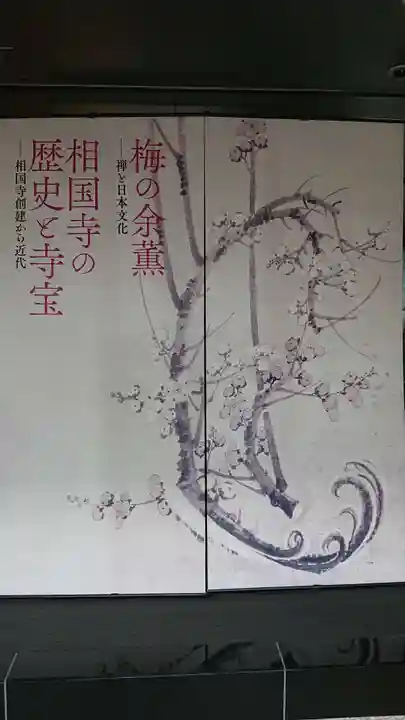 梅の余薫
──禅と日本文化
相国寺の
歴史と寺宝
──相国寺創建から近代